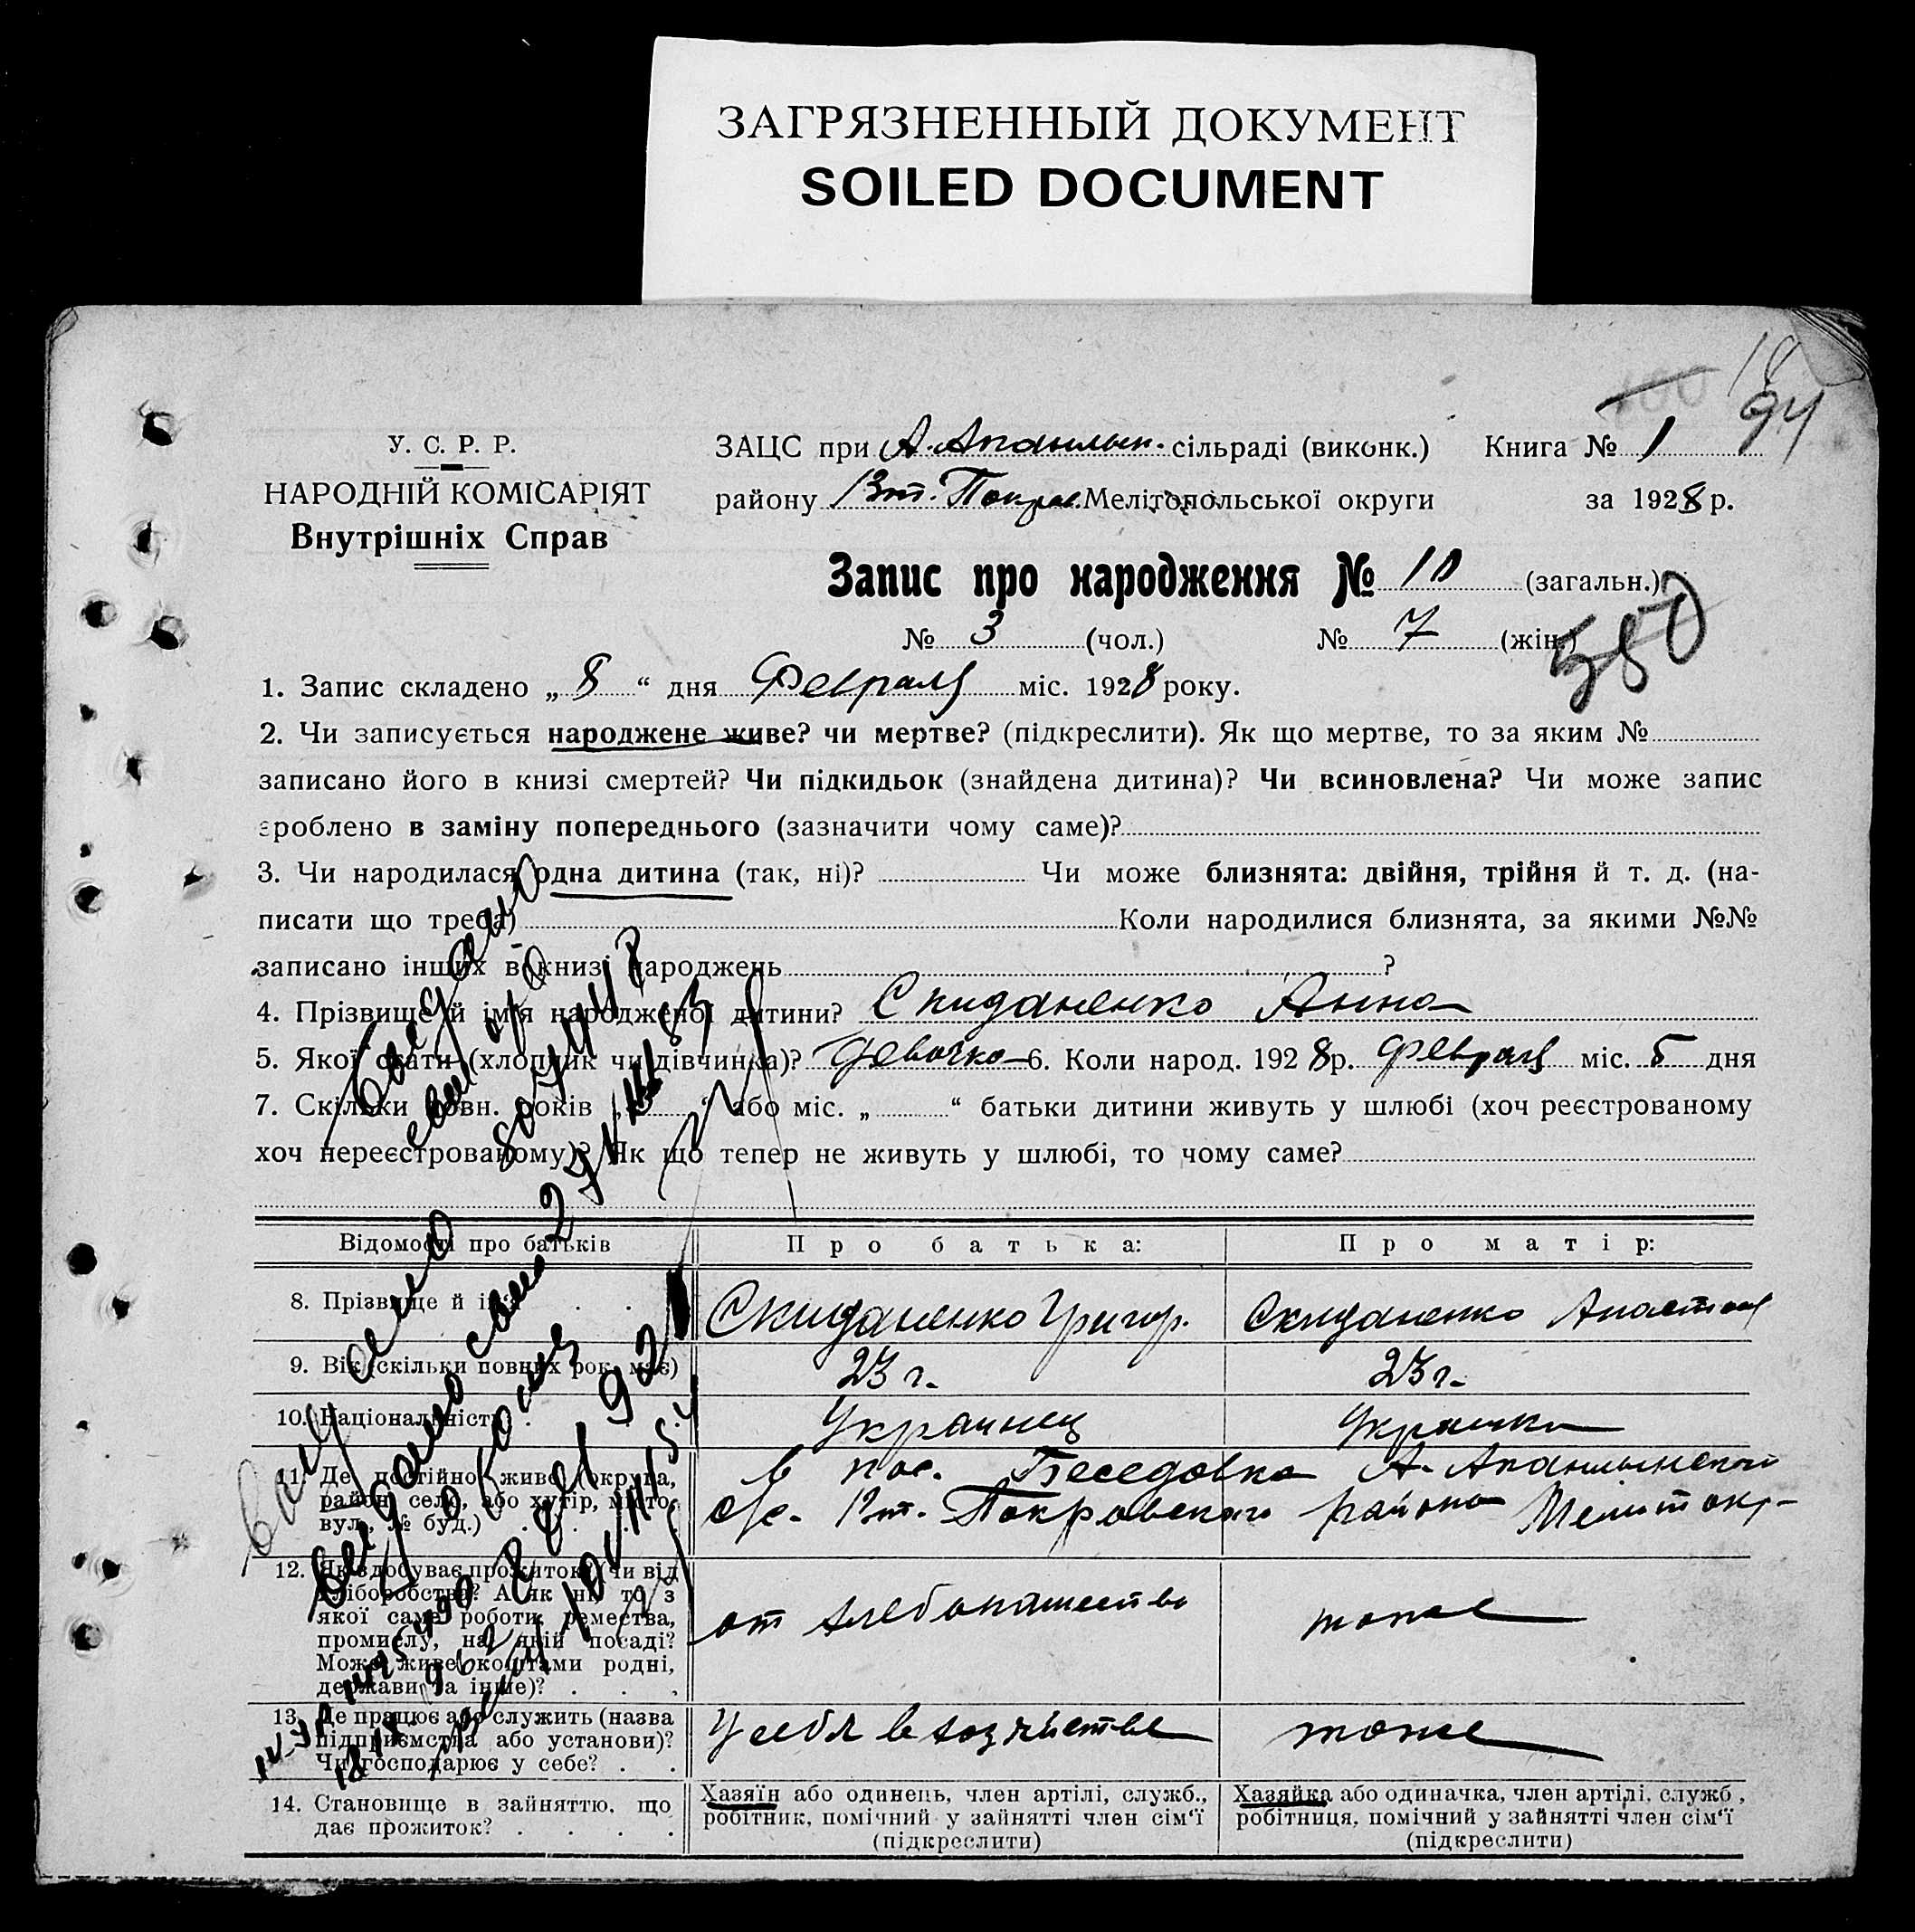 ЗАГРЯЗНЕННЫЙ ДОКУМЕНТ
SOILED DOCUMENT
94
У. С. Р. Р.
НАРОДНІЙ КОМІСАРІЯТ
Внутрішніх Справ
ЗАЦС при А. Апанлын. сільраді (виконк.) Книга № 1
району Вт. Покров. Мелітопольської округи за 1928 р.
Запис про народження № 10 (загальн.)
№ 3 (чол.) № 7 (жін.)
580
1. Запис складено „ 8 “ дня Февраля міс. 1928 року.
2. Чи записується народжене живе? чи мертве? (підкреслити). Як що мертве, то за яким №
записано його в книзі смертей? Чи підкидьок (знайдена дитина)? Чи всиновлена? Чи може запис
зроблено в заміну попереднього (зазначити чому саме)?
3. Чи народилася одна дитина (так, ні)? Чи може близнята: двійня, трійня й т. д. (на-
писати що треба) Коли народилися близнята, за якими №№
записано інших в книзі народжень ?
4. Прізвище й ім'я народженої дитини? Скиданенко Анна
5. Якої стати (хлопчик чи дівчинка)? девочка 6. Коли народ. 1928 р. Февраля міс. 5 дня
7. Скільки повн. років „ “ або міс. „ “ батьки дитини живуть у шлюбі (хоч реєстрованому
хоч нереєстрованому)? Як що тепер не живуть у шлюбі, то чому саме?
Відомості про батьків Про батька: Про матір:
8. Прізвище й ім'я Скиданенко Григор. Скиданенко Анастас
9. Вік (скільки повних рок. має) 23 г. 23 г.
10. Національність Украинец Украинка
11. Де постійно живе (округа, в пос. Беседовка А-Апанлынской
район, село, або хутір, місто, с/с. Вт. Покровского района Мелитокр-
вул., № буд.)
12. Як здобуває прожиток? чи від
хліборобства? А як ні, то з
якої саме роботи, ремества, от хлебопашества тоже
промислу, на якій посаді?
Може живе коштами родні,
держави та інше)?
13. Де працює або служить (назва У себя в хозяйстве тоже
підприємства або установи)?
Чи господарює у себе?
14. Становище в зайняттю, що Хазяїн або одинець, член артілі, служб., Хазяйка або одиначка, член артілі, служб,
дає прожиток? робітник, помічний у зайнятті член сім'ї робітниця, помічний у зайнятті член сім'ї
(підкреслити) (підкреслити)